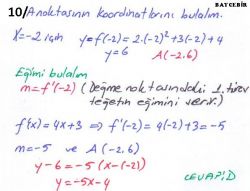 BAYCEBİR
10/ A noktasının koordinatlarını bulalım.
x=-2 için y=f(-2)=2.(-2)²+3(-2)+4
y=6 A(-2,6)
Eğimi bulalım
m=f'(-2) (Değme noktasındaki 1. türev
teğetin eğimini verir.)
f'(x)=4x+3 ⇒ f'(-2)=4(-2)+3=-5
m=-5 ve A(-2,6)
y-6=-5(x-(-2))
y=-5x-4 CEVAP:D